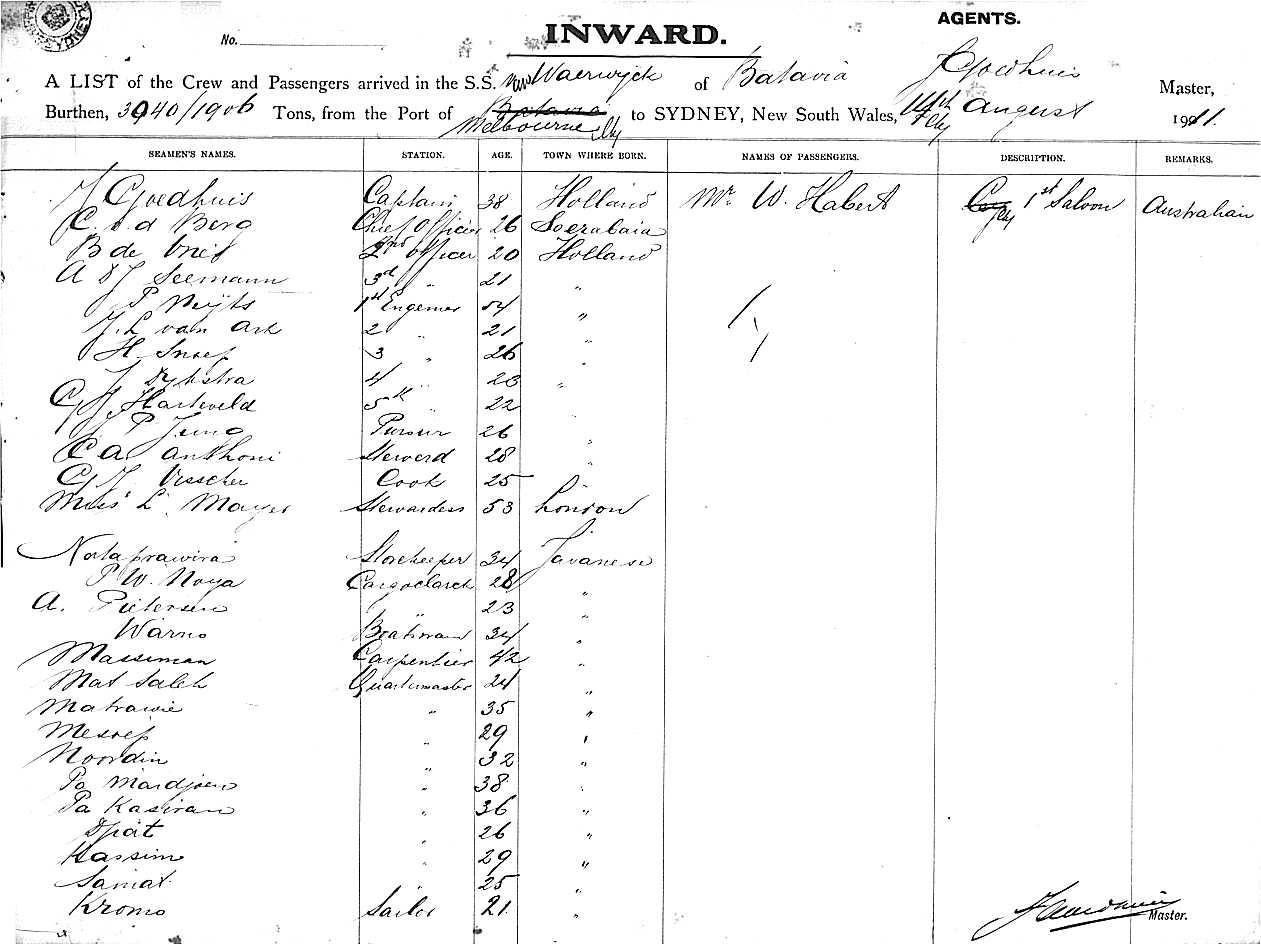 AGENTS.
No.
INWARD.
A LIST of the Crew and Passengers arrived in the S.S. van Waerwijck of Batavia J Goedhuis Master,
Burthen, 3040/1906 Tons, from the Port of Batavia Melbourne to SYDNEY, New South Wales, 14th August 1911.
SEAMEN'S NAMES. STATION. AGE. TOWN WHERE BORN. NAMES OF PASSENGERS. DESCRIPTION. REMARKS.
J Goedhuis Captain 38 Holland Mr W. Habert 1st Saloon Australian
C. v d Berg Chief Officer 26 Soerabaia
B de Vries 2nd officer 20 Holland
A D J Seemann 3rd " 21 "
P Nuijts 1st Engineer 54 "
J. L van Ark 2 " 21 "
H Snoep 3 " 26 "
J Dykstra 4 " 23 "
G J Harteveld 5th " 22 "
J P Jung Pursur 26 "
C A Anthoni Steward 28 "
G J Visscher Cook 25 "
Miss L. Mayer Stewardess 53 London
Notaprawira Storekeeper 34 Javanese
P W. Noya Cargoclarck 28 "
A. Pietersen " 23 "
Warno Boatsman 34 "
Massiman Carpentier 42 "
Mat Saleh Quartermaster 24 "
Matrawie " 35 "
Mesoep " 29 "
Noordin " 32 "
Pa Mardjoen " 38 "
Pa Kasiran " 36 "
Djiat " 26 "
Kassim " 29 "
Samat " 25 "
Kromo Sailor 21 "
J Goedhuis
Master.